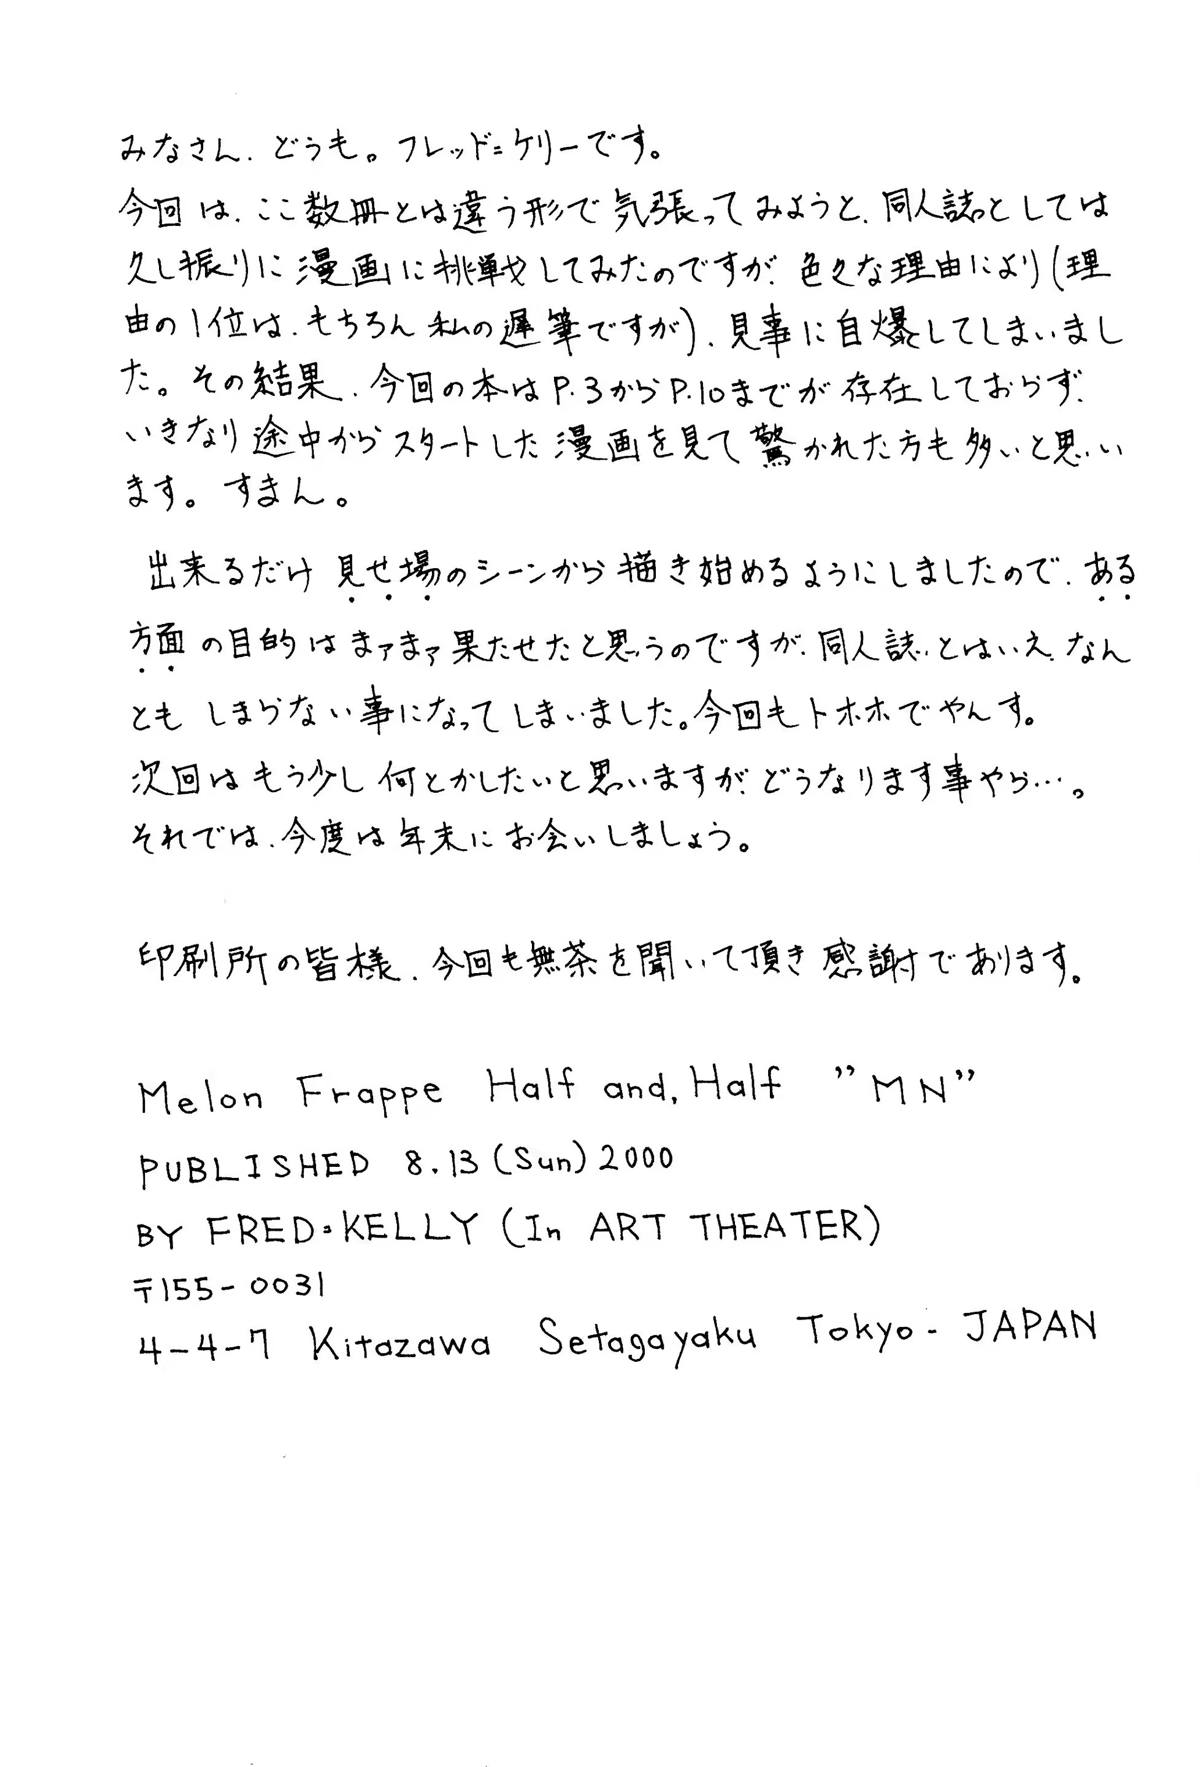 みなさん、どうも。フレッド=ケリーです。
今回は、ここ数冊とは違う形で気張ってみようと、同人誌としては
久し振りに漫画に挑戦してみたのですが、色々な理由により(理
由の1位は、もちろん私の遅筆ですが)、見事に自爆してしまいまし
た。その結果、今回の本はP.3からP.10までが存在しておらず、
いきなり途中からスタートした漫画を見て驚かれた方も多いと思い
ます。すまん。
出来るだけ見せ場のシーンから描き始めるようにしましたので、ある
方面の目的はまァまァ果たせたと思うのですが、同人誌とはいえ、なん
ともしまらない事になってしまいました。今回もトホホでやんす。
次回はもう少し何とかしたいと思いますが、どうなります事やら…。
それでは、今度は年末にお会いしましょう。
印刷所の皆様、今回も無茶を聞いて頂き感謝であります。
Melon Frappe Half and, Half ”MN”
PUBLISHED 8.13(Sun)2000
BY FRED=KELLY (In ART THEATER)
〒155-0031
4-4-7 Kitazawa Setagayaku Tokyo-JAPAN